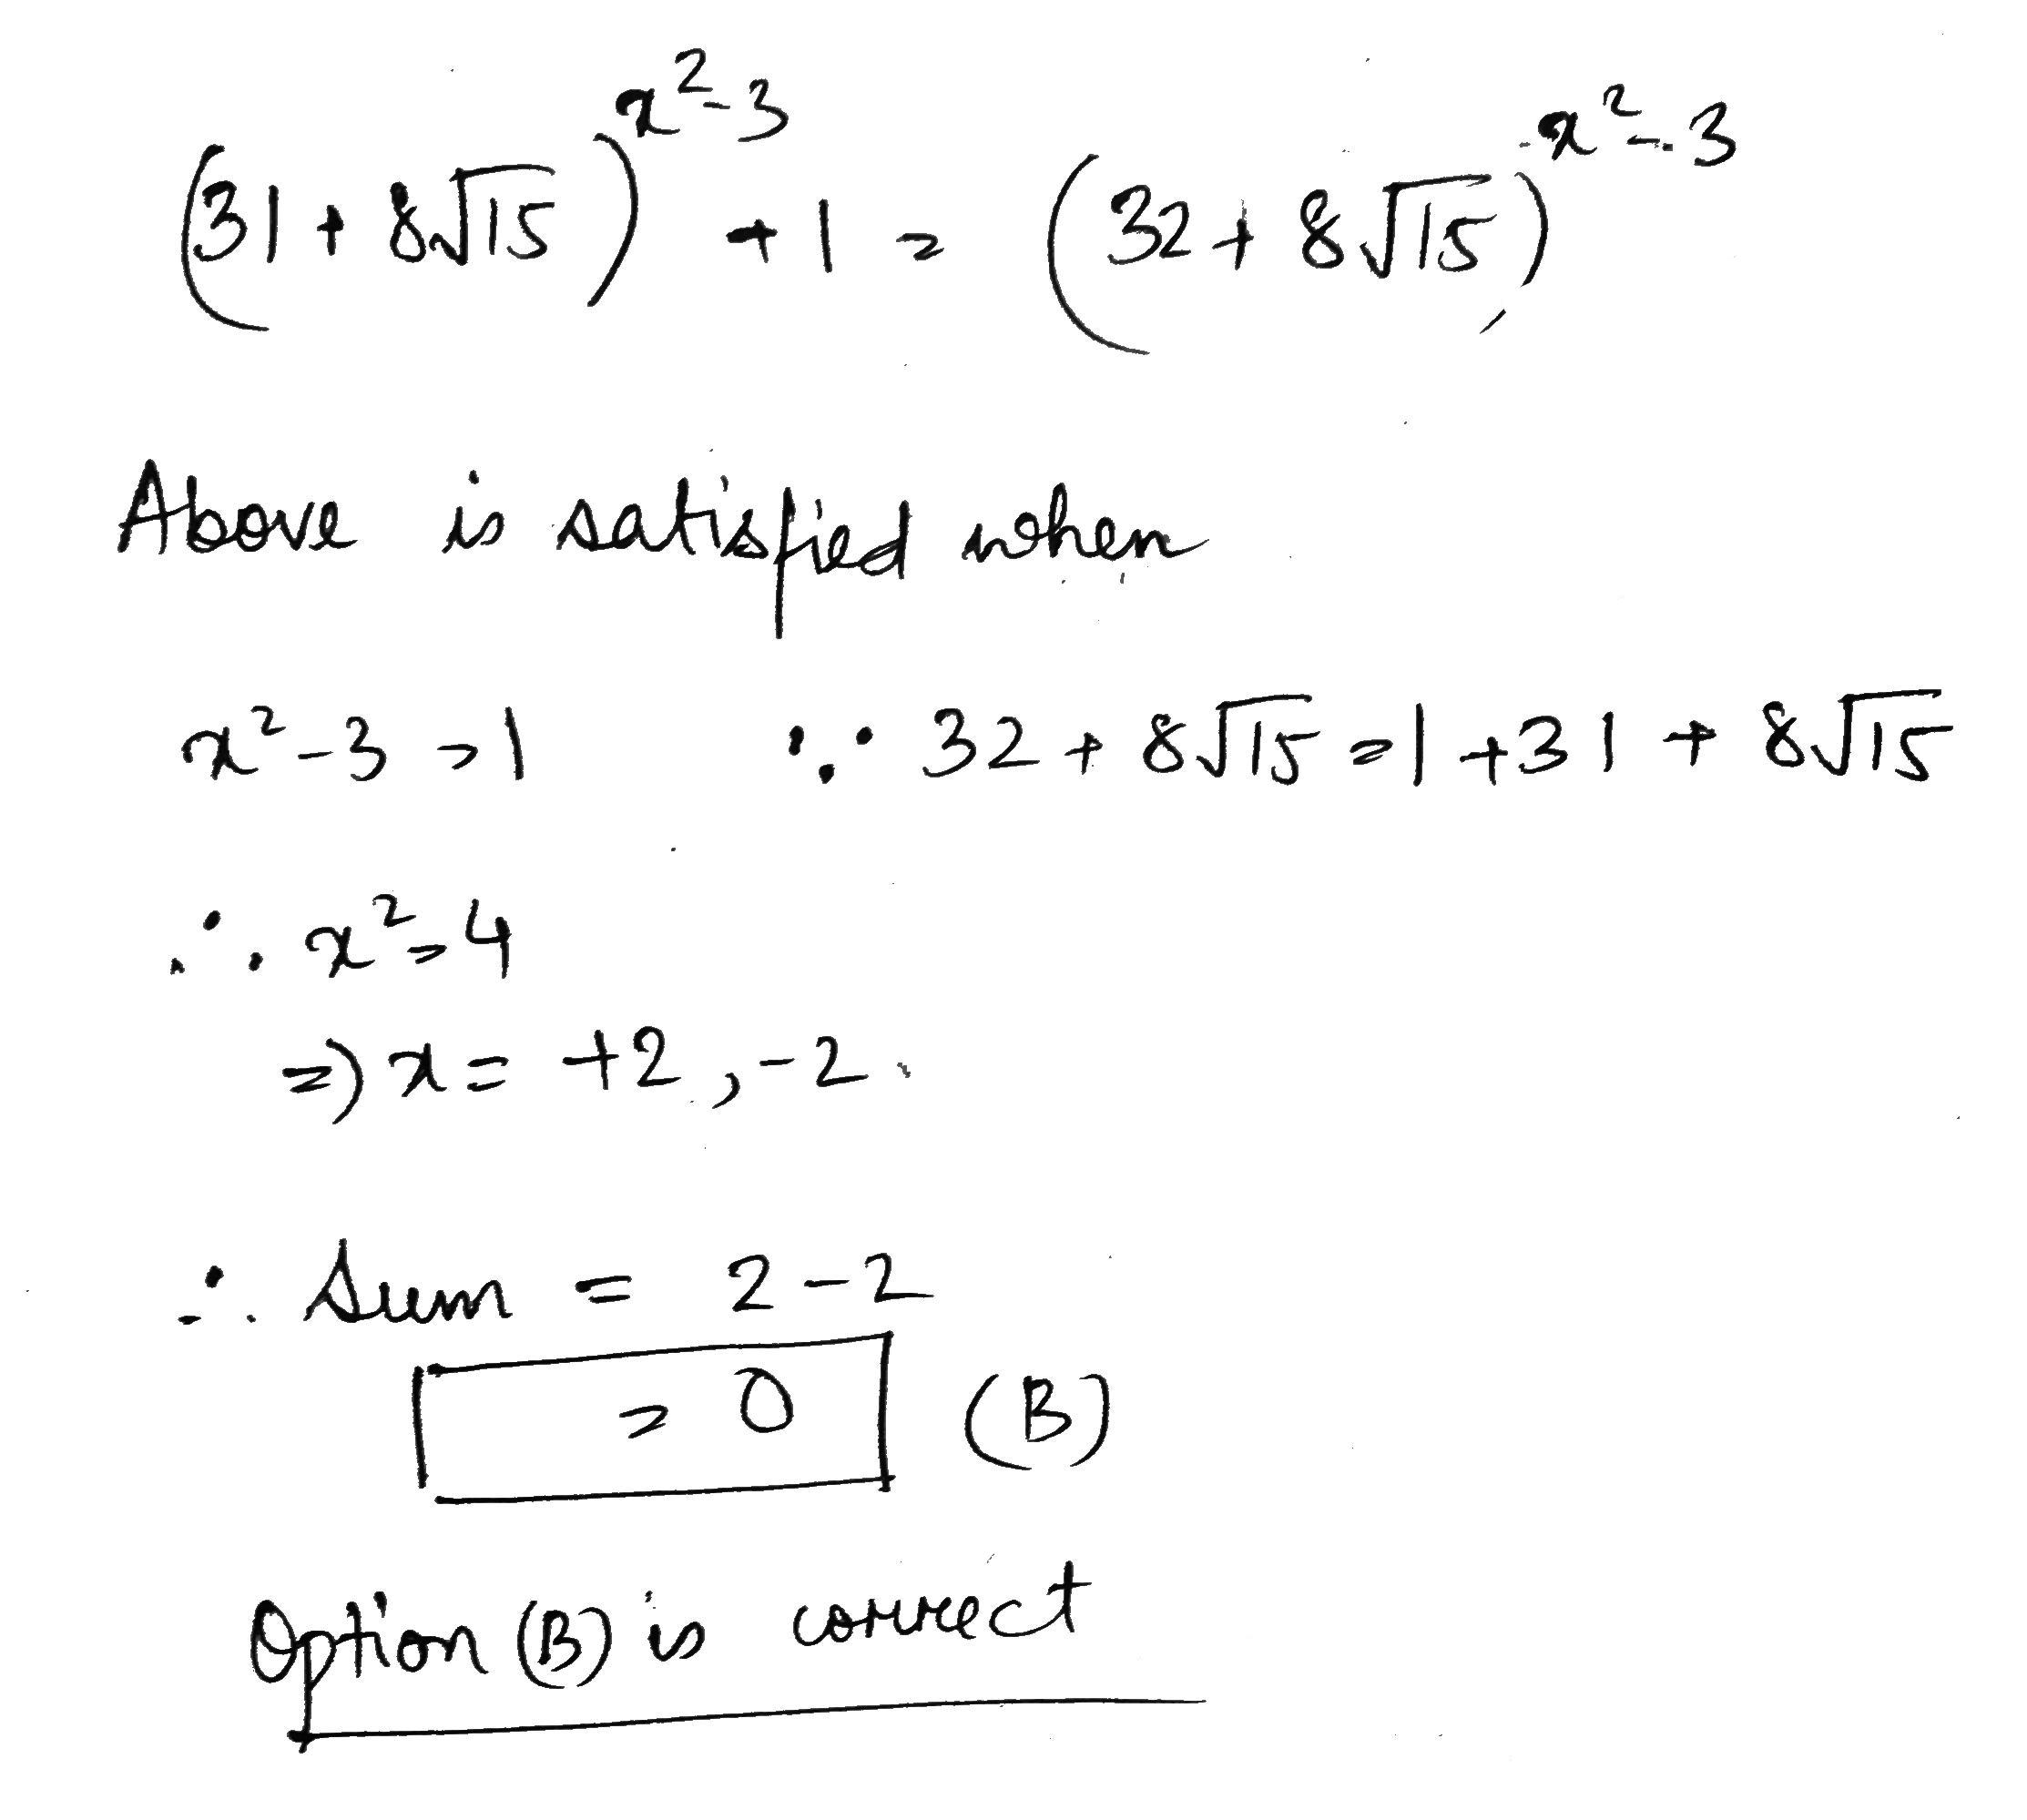 (31+8√15)^(x²-3) +1 = (32+8√15)^(x²-3)
Above is satisfied when
x²-3=1 ∵ 32+8√15=1+31+8√15
∴ x²=4
⇒ x= +2,-2.
∴ Sum = 2-2
= 0 (B)
Option (B) is correct